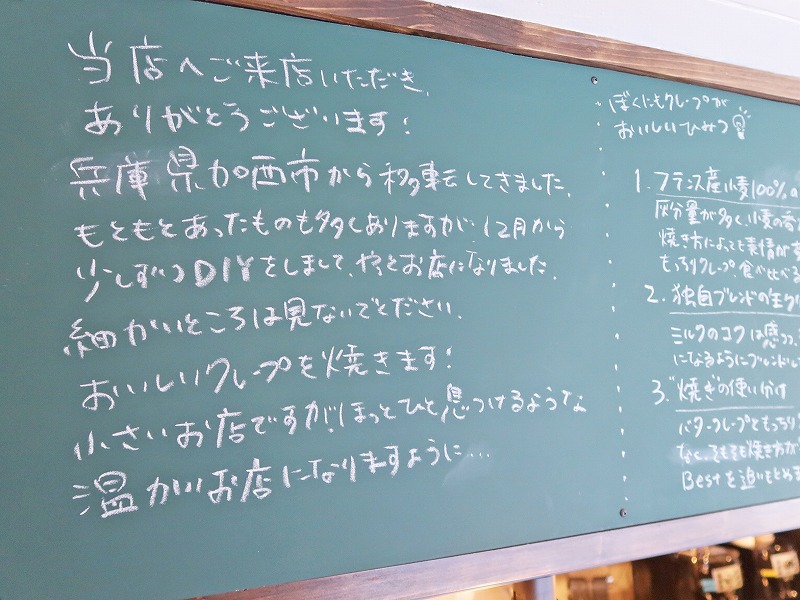 当店へご来店いただき、
ありがとうございます!
兵庫県加西市から移転してきました。
もともとあったものも多くありますが、12月から
少しずつDIYをしまして、やっとお店になりました。
細かいところは見ないでください。
おいしいクレープを焼きます!
小さいお店ですが、ほっとひと息つけるような
温かいお店になりますように…
ぼくにもクレープが
おいしいひみつ
1. フランス産小麦100%の
灰分量が多く、小麦の香
焼き方によっても表情が
もっちりクレープ 食べ比べる
2. 独自ブレンドの生ク
ミルクのコクは感
になるようにブレンド
3. 焼きの使い分け
バタークレープともっちり
なく、そもそも焼き方が
Bestを追いもとめ